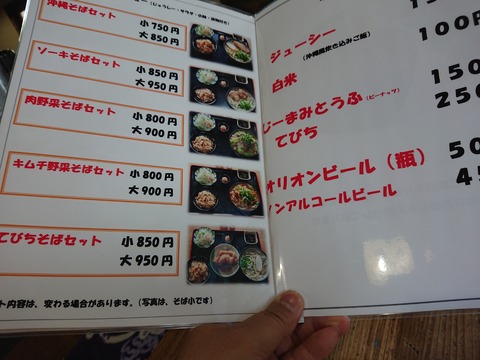 沖縄そばセット
小 750円
大 850円
ソーキそばセット
小 850円
大 950円
肉野菜そばセット
小 800円
大 900円
キムチ野菜そばセット
小 800円
大 900円
てびちそばセット
小 850円
大 950円
ト内容は、変わる場合があります。(写真は、そば小です)
ジューシー
(沖縄風炊き込みご飯)
100円
白米
じーまみとうふ(ピーナッツ)
150
てびち
250
オリオンビール(瓶)
50
ノンアルコールビール
45